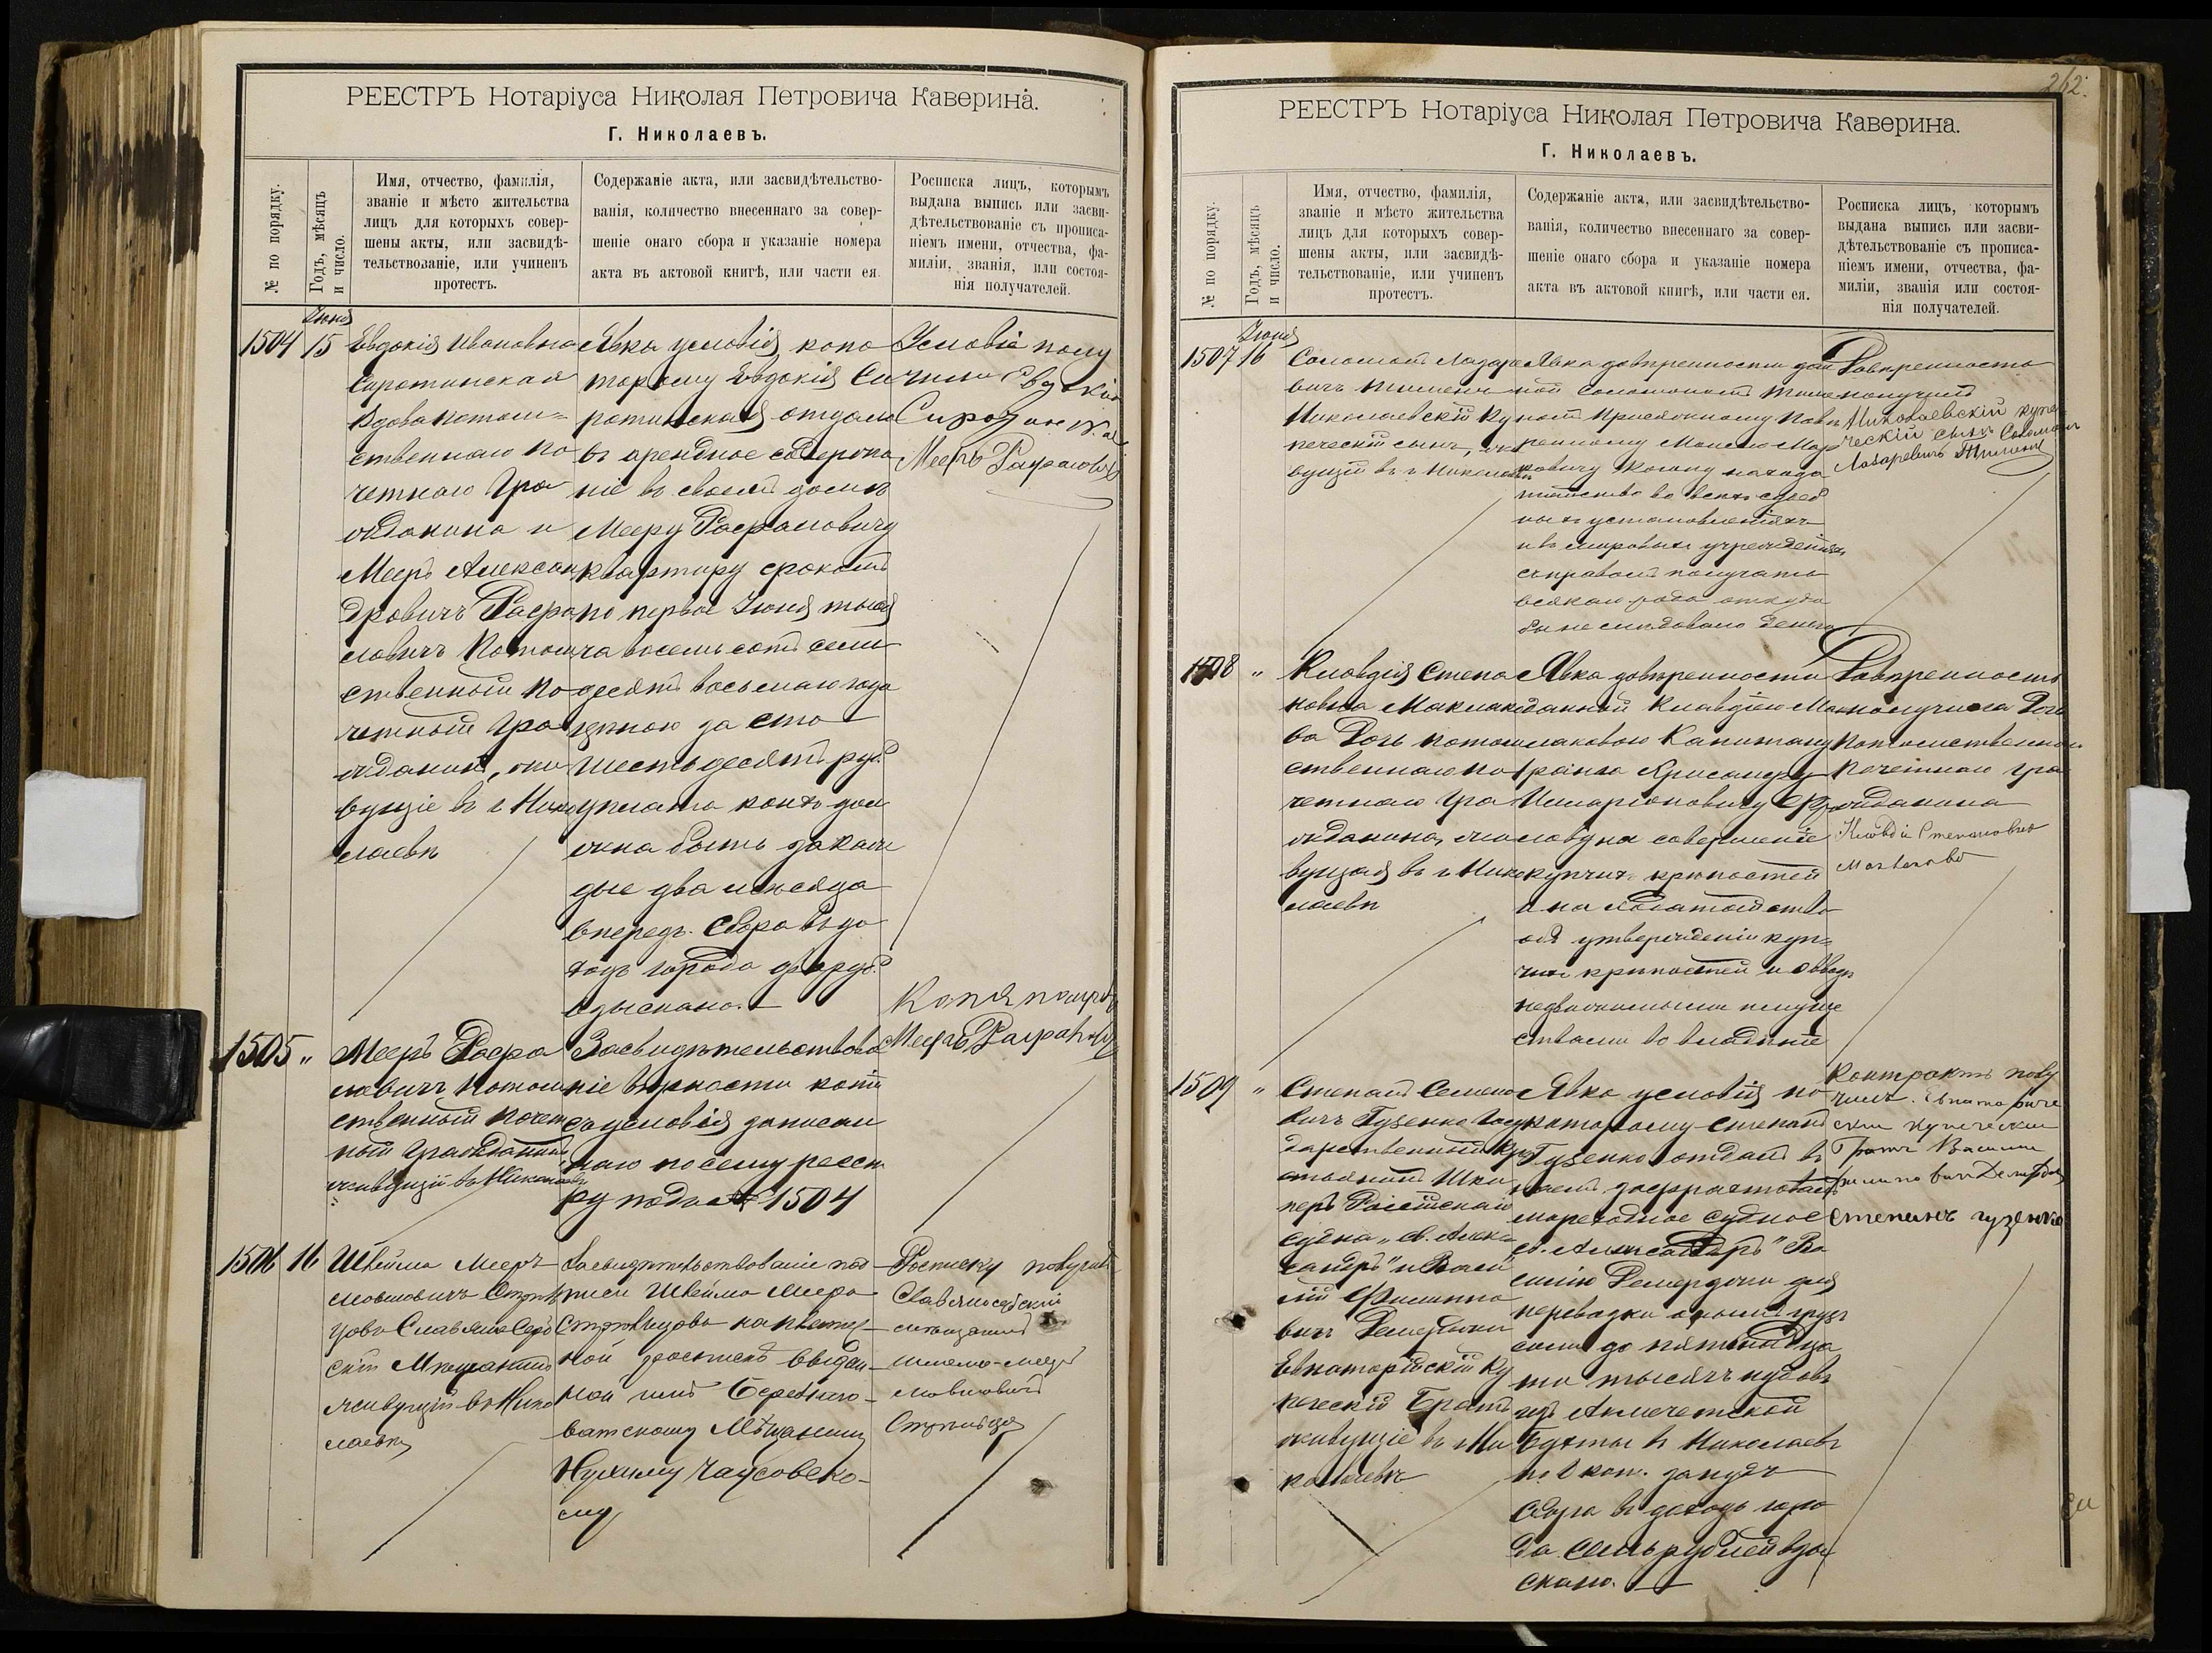 РЕЕСТРЪ Нотаріуса Николая Петровича Каверина.
Г. Николаевъ.
№ по порядку.
Годъ, мѣсяцъ
и число.
Имя, отчество, фамилія,
званіе и мѣсто жительства
лицъ для которыхъ совер-
шены акты, или засвидѣ-
тельствованіе, или учиненъ
протестъ.
Содержаніе акта, или засвидѣтельство-
ванія, количество внесеннаго за совер-
шеніе онаго сбора и указаніе номера
акта въ актовой книгѣ, или части ея.
Росписка лицъ, которымъ
выдана выпись или засви-
дѣтельствованіе съ прописа-
ніемъ имени, отчества, фа-
миліи, званія, или состоя-
нія получателей.
Іюня
1504
15
Евдокія Ивановна
Сиротинская
Вдова потом=
ственнаго по
четнаго Гра
жданина и
Мееръ Алексан
дровичъ Рафа
ловичъ Потом
ственный По-
четный Гра
жданинъ, жи
вущіе въ г Нико
лаевѣ
Явка условія, кото
торому Евдокія Си
ротинская отдала
въ арендное содержа
ніе въ своемъ домѣ
Мееру Рафаловичу
квартиру срокомъ
по первое Іюня тыся
ча восемь сотъ семь
десятъ восьмаго года
цѣною за сто
шестьдесятъ руб.
уплата коихъ дол
жна быть за каж
дые два мѣсяца
впередъ. Сбора въ до
ходъ города
взыскано.
Условіе полу
чили Евдокія
Сиротинская
Мееръ Рафаловичъ
1505
"
Мееръ Рафа
ловичъ Потом
ственный Почет
ный Гражданинъ
живущій въ Николаевѣ
Засвидѣтельствова
ніе вѣрности копіи
съ условія записан
наго по сему реест
ру подъ № 1504
Копія получ
Мееръ Рафалович
1506
16
Шлейма Мееръ
Мовшовичъ Стрѣль
цовъ Славяносерб
скій Мѣщанинъ
живущій въ Нико
лаевѣ
Засвидѣтельствованіе под
писи Шлейма Меера
Стрѣльцова на
ной роспискѣ выдан
ной имъ
ватскому Мѣщанину
Нухиму Чаусовско-
му
Росписку получилъ
Славяносербскій
мѣщанинъ
Шлемо-Меер
Мовшовичъ
Стрѣльцовъ
262.
РЕЕСТРЪ Нотаріуса Николая Петровича Каверина.
Г. Николаевъ.
№ по порядку.
Годъ, мѣсяцъ
и число.
Имя, отчество, фамилія,
званіе и мѣсто жительства
лицъ для которыхъ совер-
шены акты, или засвидѣ-
тельствованіе, или учиненъ
протестъ.
Содержаніе акта, или засвидѣтельство-
ванія, количество внесеннаго за совер-
шеніе онаго сбора и указаніе номера
акта въ актовой книгѣ, или части ея.
Росписка лицъ, которымъ
выдана выпись или засви-
дѣтельствованіе съ прописа-
ніемъ имени, отчества, фа-
миліи, званія или состоя-
нія получателей.
Іюня
1507
16
Соломонъ Лазаре
вичъ
Николаевскій Ку
печескій сынъ, жи
вущій въ г Николаевѣ
Явка довѣренности дан
ной Соломономъ
Присяжному Повѣ
ренному
ковичу Когану на хода
тайство во всѣхъ судеб
ныхъ установленіяхъ
и въ мировыхъ учрежденіяхъ
съ правомъ получать
всякаго рода откуда
бы не слѣдовало деньги
Довѣренность
получилъ
Николаевскій купе
ческій сынъ Соломонъ
Лазаревичъ
1508
"
Клавдія Степа
новна Маклако
ва Дочь потом
ственнаго по
четнаго Гра
жданина, жи
вущая въ г Нико
лаевѣ
Явка довѣренности
данной Клавдіею Ма
клаковою Капитану
І ранга Хрисанфу
Илларіоновичу
на совершеніе
купчихъ крѣпостей
и на ходатайство
объ утвержденіи куп=
чихъ крѣпостей и вводѣ
недвижимыми имуще
ствами во владѣніе
Довѣренность
получила Дочь
Потомственнаго
Почетнаго гра
жданина
Клавдія Степановна
Маклакова
1509
"
Степанъ Семено
вичъ Гузенко Госу
дарственный Кре
стьянинъ Шки
перъ Россійскаго
судна „св. Алек
сандръ" и Васи
лій Филиппо
вичъ Демерджи
Евпаторійскій Ку
печескій Братъ
живущіе въ г Ни
колаевѣ
Явка условія, по
которому Степанъ
Гузенко отдалъ въ
наемъ зафрахтовалъ
мореходное судно
„св. Александръ" Ва
силію Демерджи для
перевозки
до пятнадца
ти тысячъ пудовъ
изъ Акмечетской
Бухты въ Николаевъ
по 2 коп. за пудъ
Сбора въ доходъ горо
да семь рублей взы
скано.
Контрактъ полу
чилъ. Евпаторій
скій купеческій
Братъ Василій
Филипович Демерджи
Степанъ гузенко